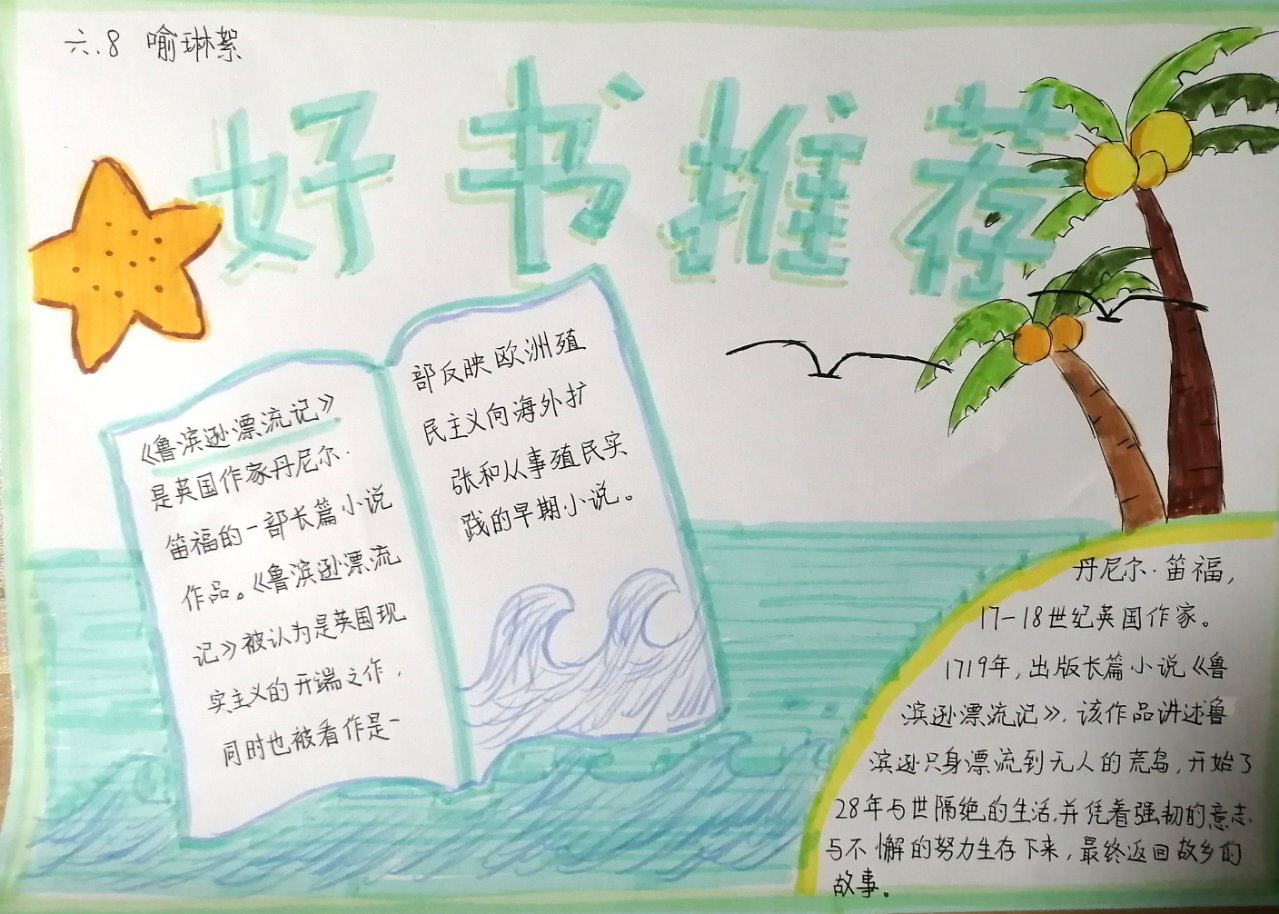 六.8 喻琳絮
好书推荐
《鲁滨逊漂流记》
是英国作家丹尼尔·
笛福的一部长篇小说
作品。《鲁滨逊漂流
记》被认为是英国现
实主义的开端之作，
同时也被看作是一
部反映欧洲殖
民主义向海外扩
张和从事殖民实
践的早期小说。
丹尼尔·笛福，
17-18世纪英国作家。
1719年，出版长篇小说《鲁
滨逊漂流记》，该作品讲述鲁
滨逊只身漂流到无人的荒岛，开始了
28年与世隔绝的生活，并凭着强韧的意志
与不懈的努力生存下来，最终返回故乡的
故事。